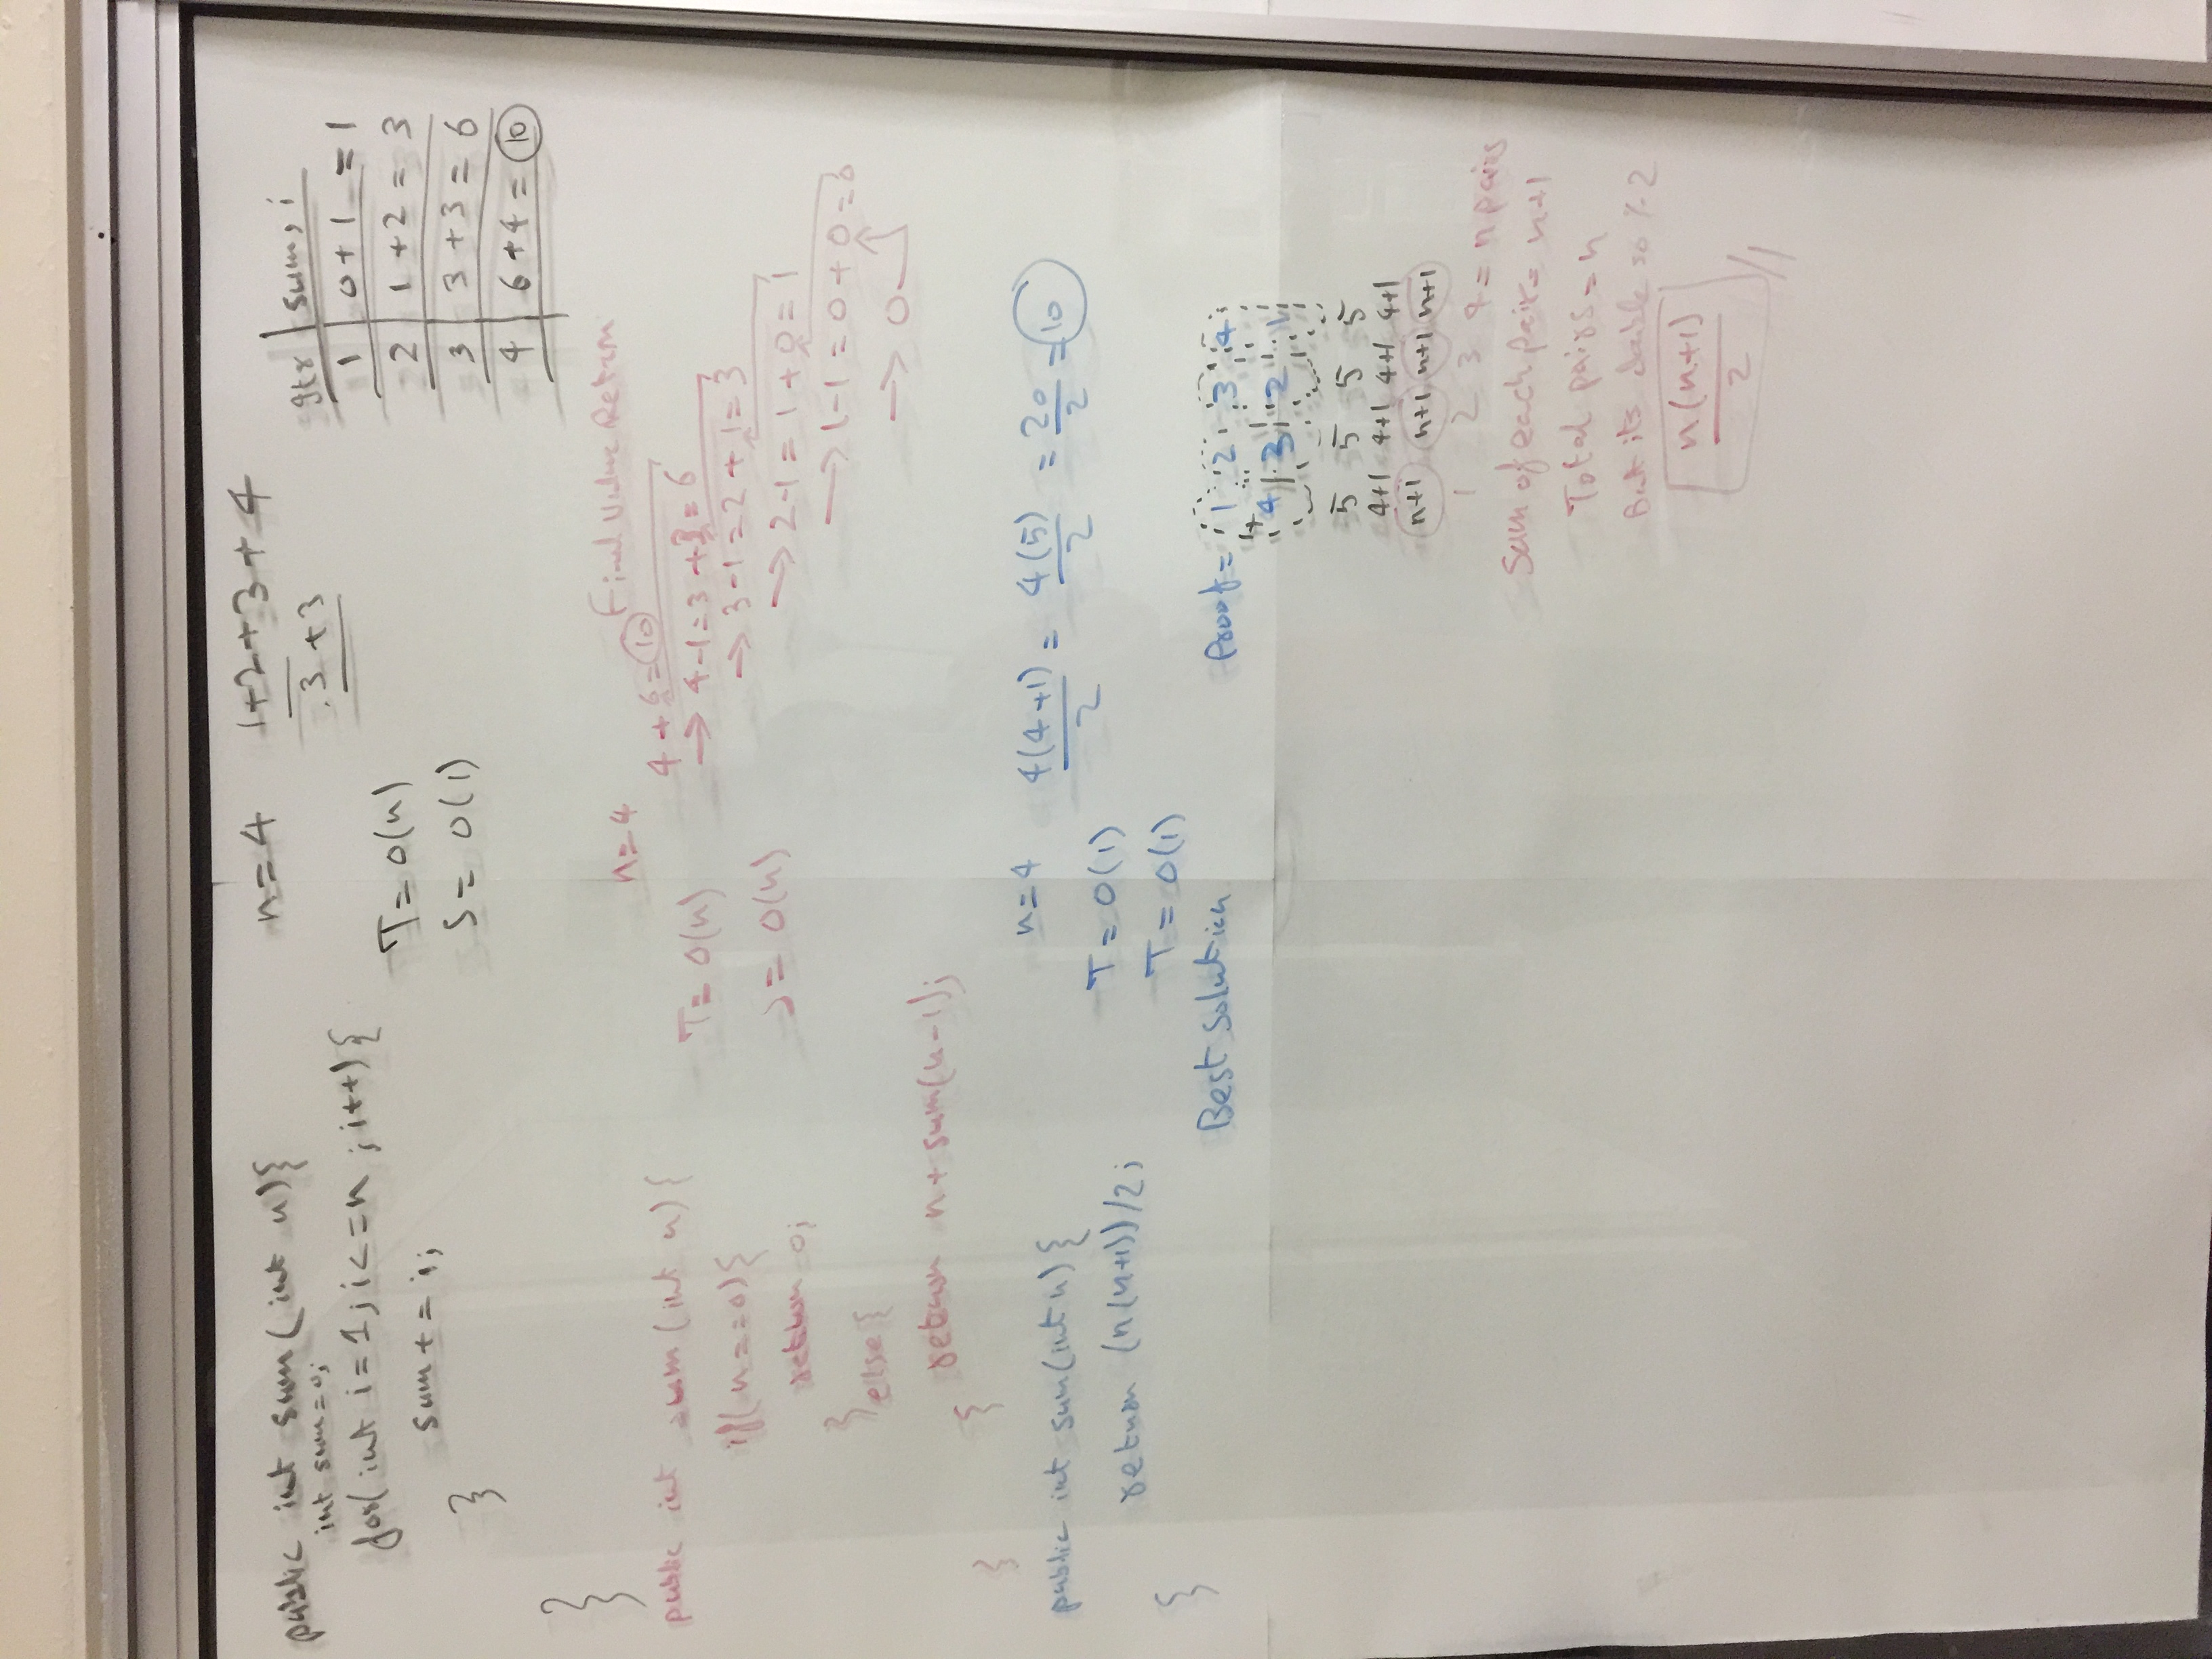 public int sum(int n){
int sum=0;
for(int i=1;i<=n;i++){
sum+=i;
}
}
n=4 1+2+3+4
3+3
T=O(n)
S=O(1)
Itr sum, i
1 0+1=1
2 1+2=3
3 3+3=6
4 6+4=10
public int sum(int n){
if(n==0){
return 0;
}
else{
return n+sum(n-1);
{
}
n=4
T=O(n)
S=O(n)
Final Value Return
4+6=10
→ 4-1=3+3=6
→ 3-1=2+1=3
→ 2-1=1+0=1
→ 1-1=0+0=0
→ 0
public int sum(int n){
return (n(n+1))/2;
{
n=4 4(4+1)/2 = 4(5)/2 = 20/2 = 10
T=O(1)
T=O(1)
Best Solution
Proof= 1 2 3 4
+
4 3 2 1
5 5 5 5
4+1 4+1 4+1 4+1
n+1 n+1 n+1 n+1
1 2 3 4 = n pairs
Sum of each pair= n+1
Total pairs=n
But its double so 2
n(n+1)
2